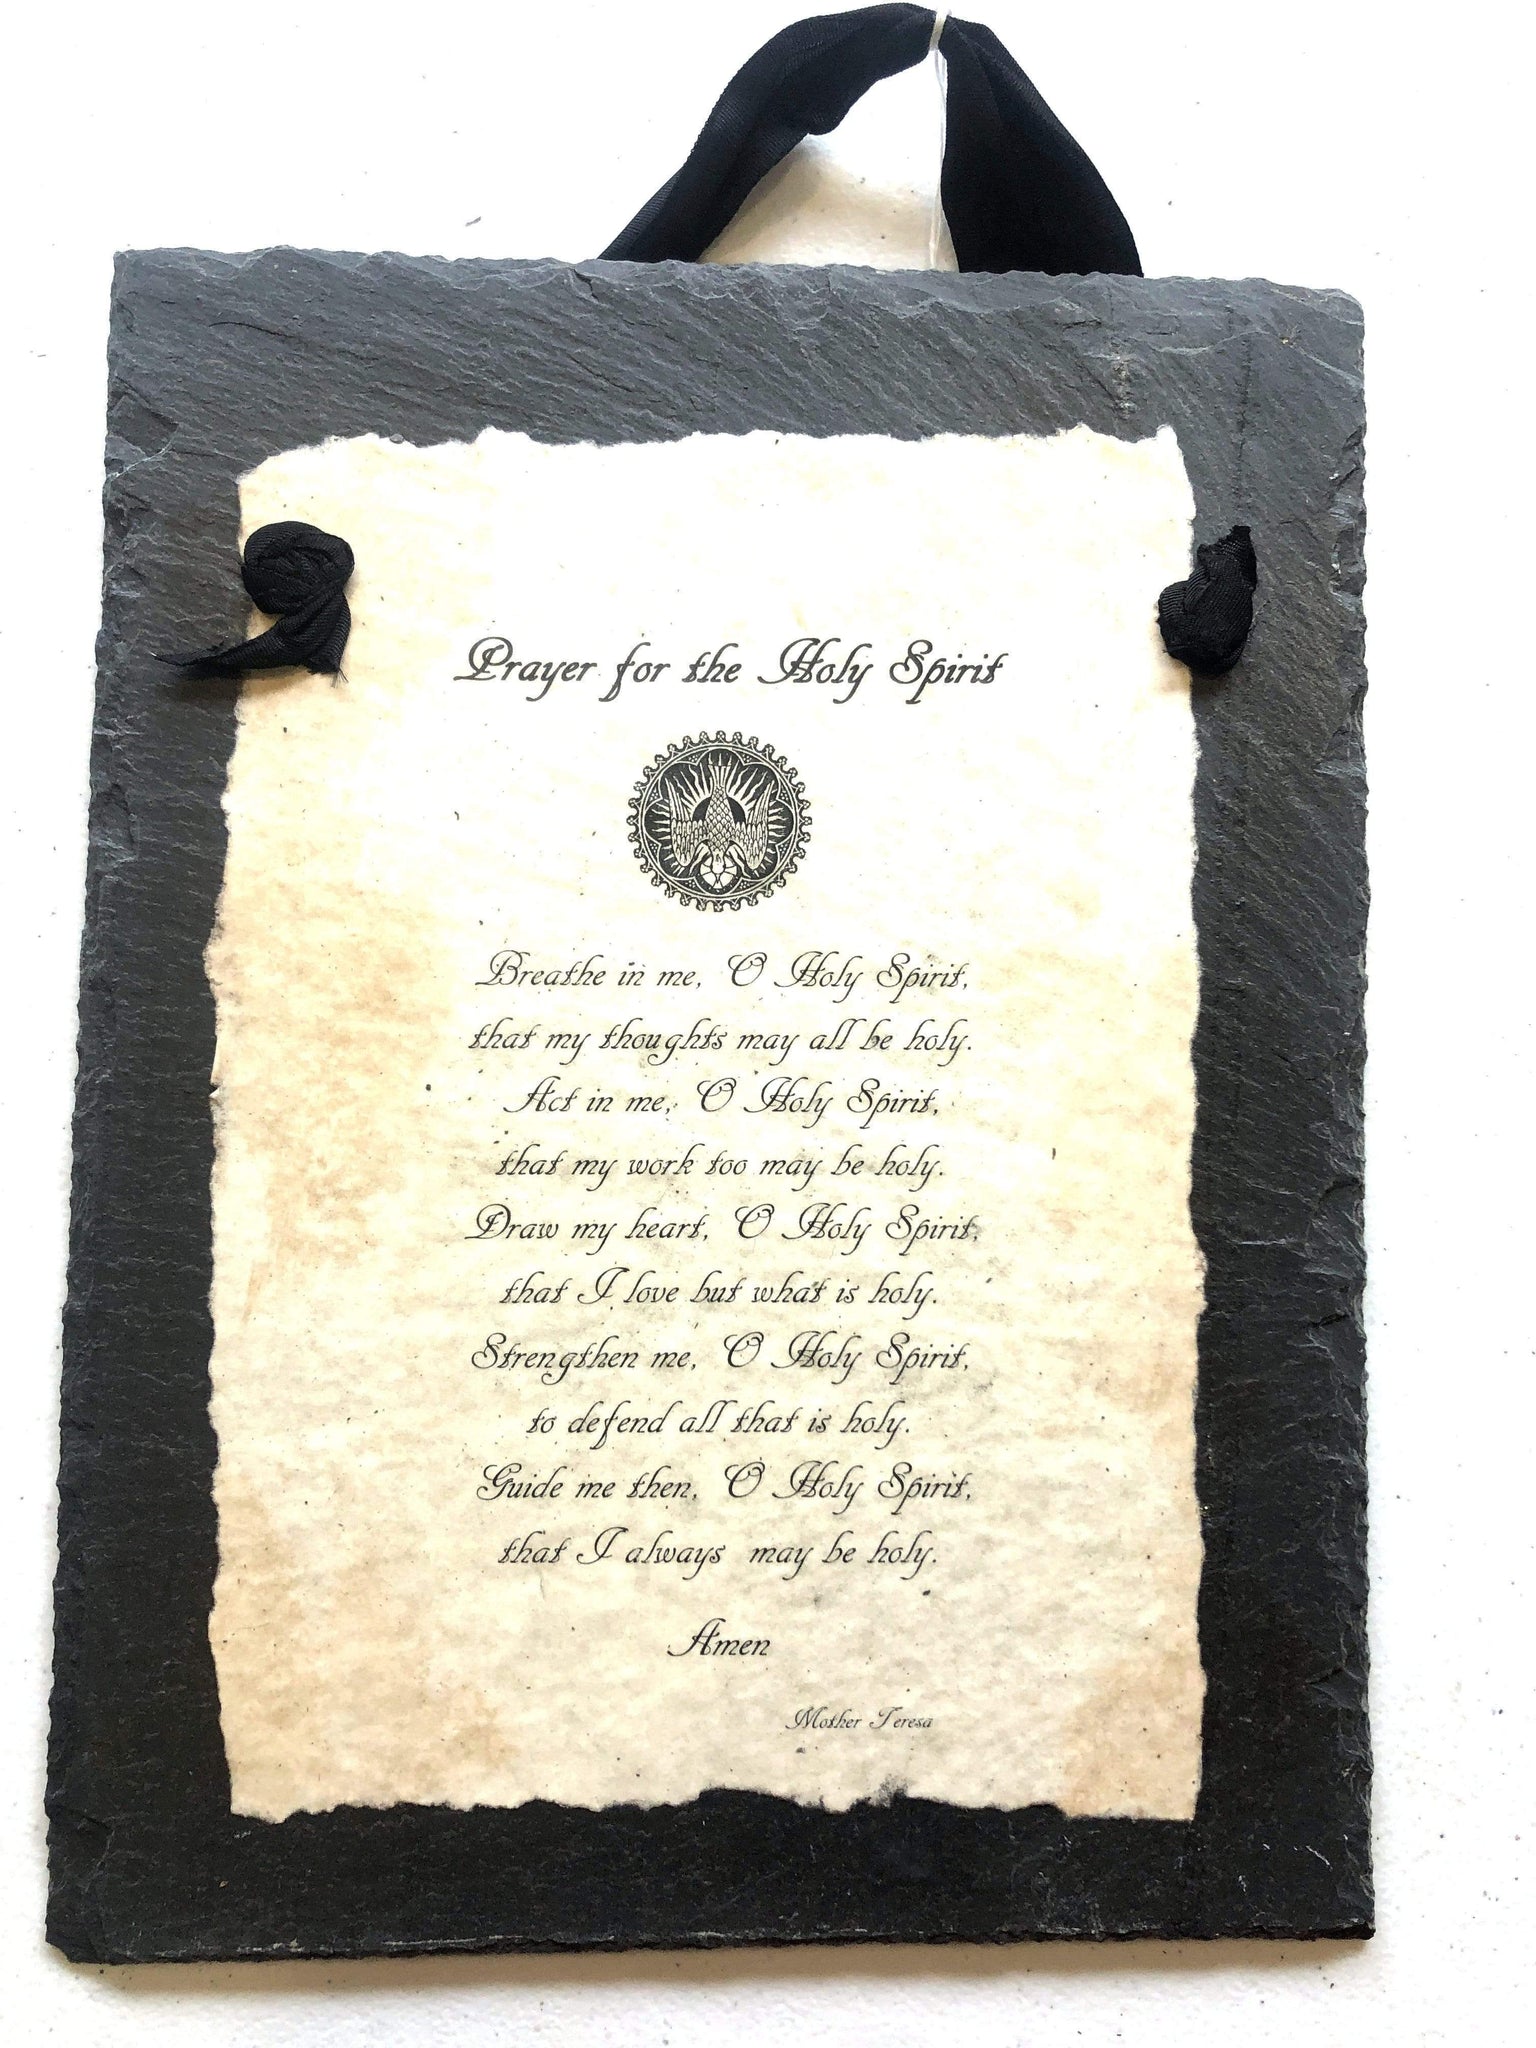 Prayer for the Holy Spirit
Breathe in me, O Holy Spirit,
that my thoughts may all be holy.
Act in me, O Holy Spirit,
that my work too may be holy.
Draw my heart, O Holy Spirit,
that I love but what is holy.
Strengthen me, O Holy Spirit,
to defend all that is holy.
Guide me then, O Holy Spirit,
that I always may be holy.
Amen
Mother Teresa